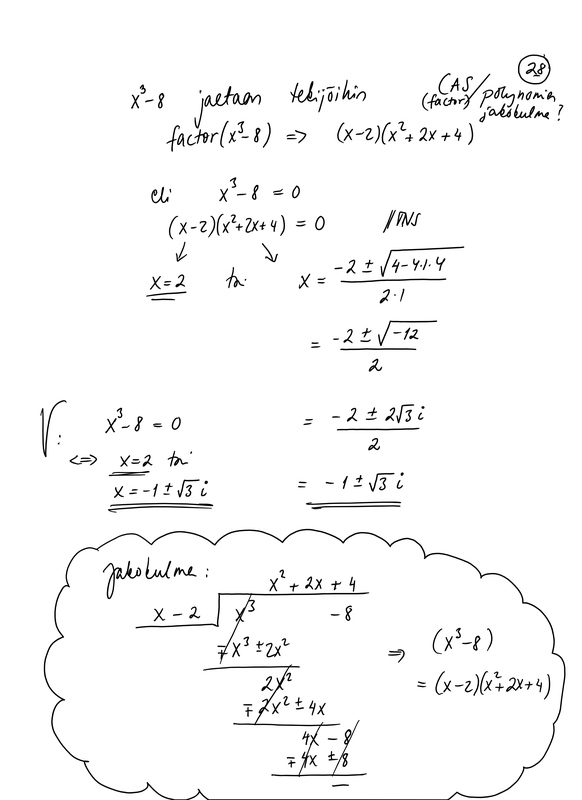 28
x³-8 jaetaan tekijöihin (CAS (factor) / polynomien jakokulma?
factor(x³-8) => (x-2)(x²+2x+4)
eli x³-8 = 0
(x-2)(x²+2x+4) = 0 //TNS
↙ ↘
x=2 tai x = (-2 ± √(4-4·1·4)) / (2·1)
= (-2 ± √(-12)) / 2
V: x³-8 = 0 = (-2 ± 2√3 i) / 2
<=> x=2 tai
x = -1 ± √3 i = -1 ± √3 i
Jakokulma:
x² + 2x + 4
x - 2 x³ -8
∓x³ ± 2x² => (x³-8)
2x² = (x-2)(x²+2x+4)
∓2x² ± 4x
4x - 8
∓4x ± 8
—